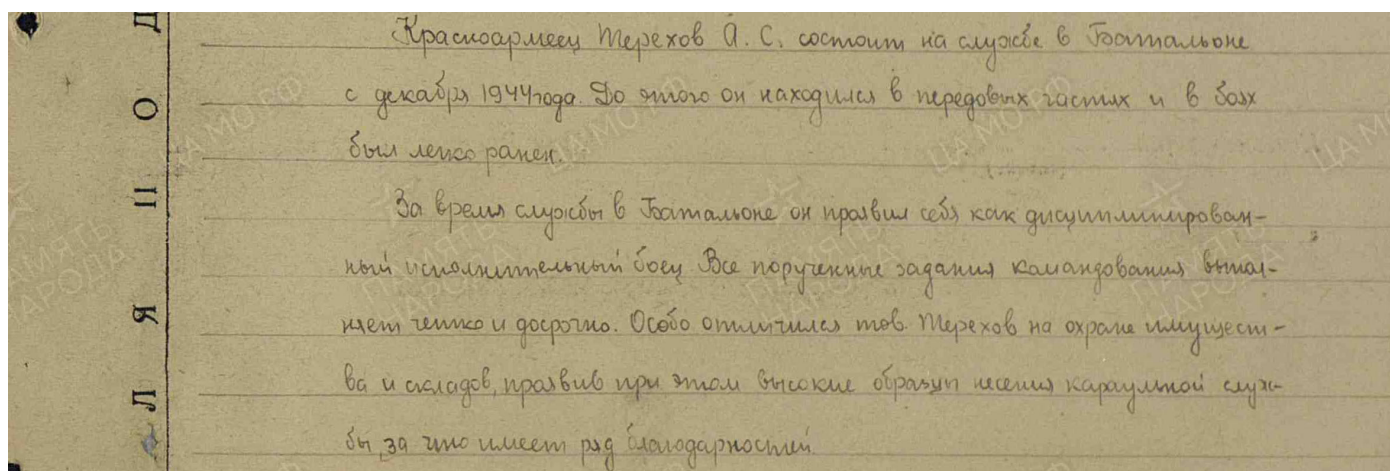 Красноармеец Терехов А. С. состоит на службе в Батальоне
с декабря 1944 года. До этого он находился в передовых частях и в боях
был легко ранен.
За время службы в Батальоне он проявил себя как дисциплинирован-
ный исполнительный боец. Все порученные задания командования выпол-
няет четко и досрочно. Особо отличился тов. Терехов на охране имущест-
ва и складов, проявив при этом высокие образцы несения караульной служ-
бы, за что имеет ряд благодарностей.
Л Я П О Д
ПАМЯТЬ НАРОДА
ЦА МО РФ